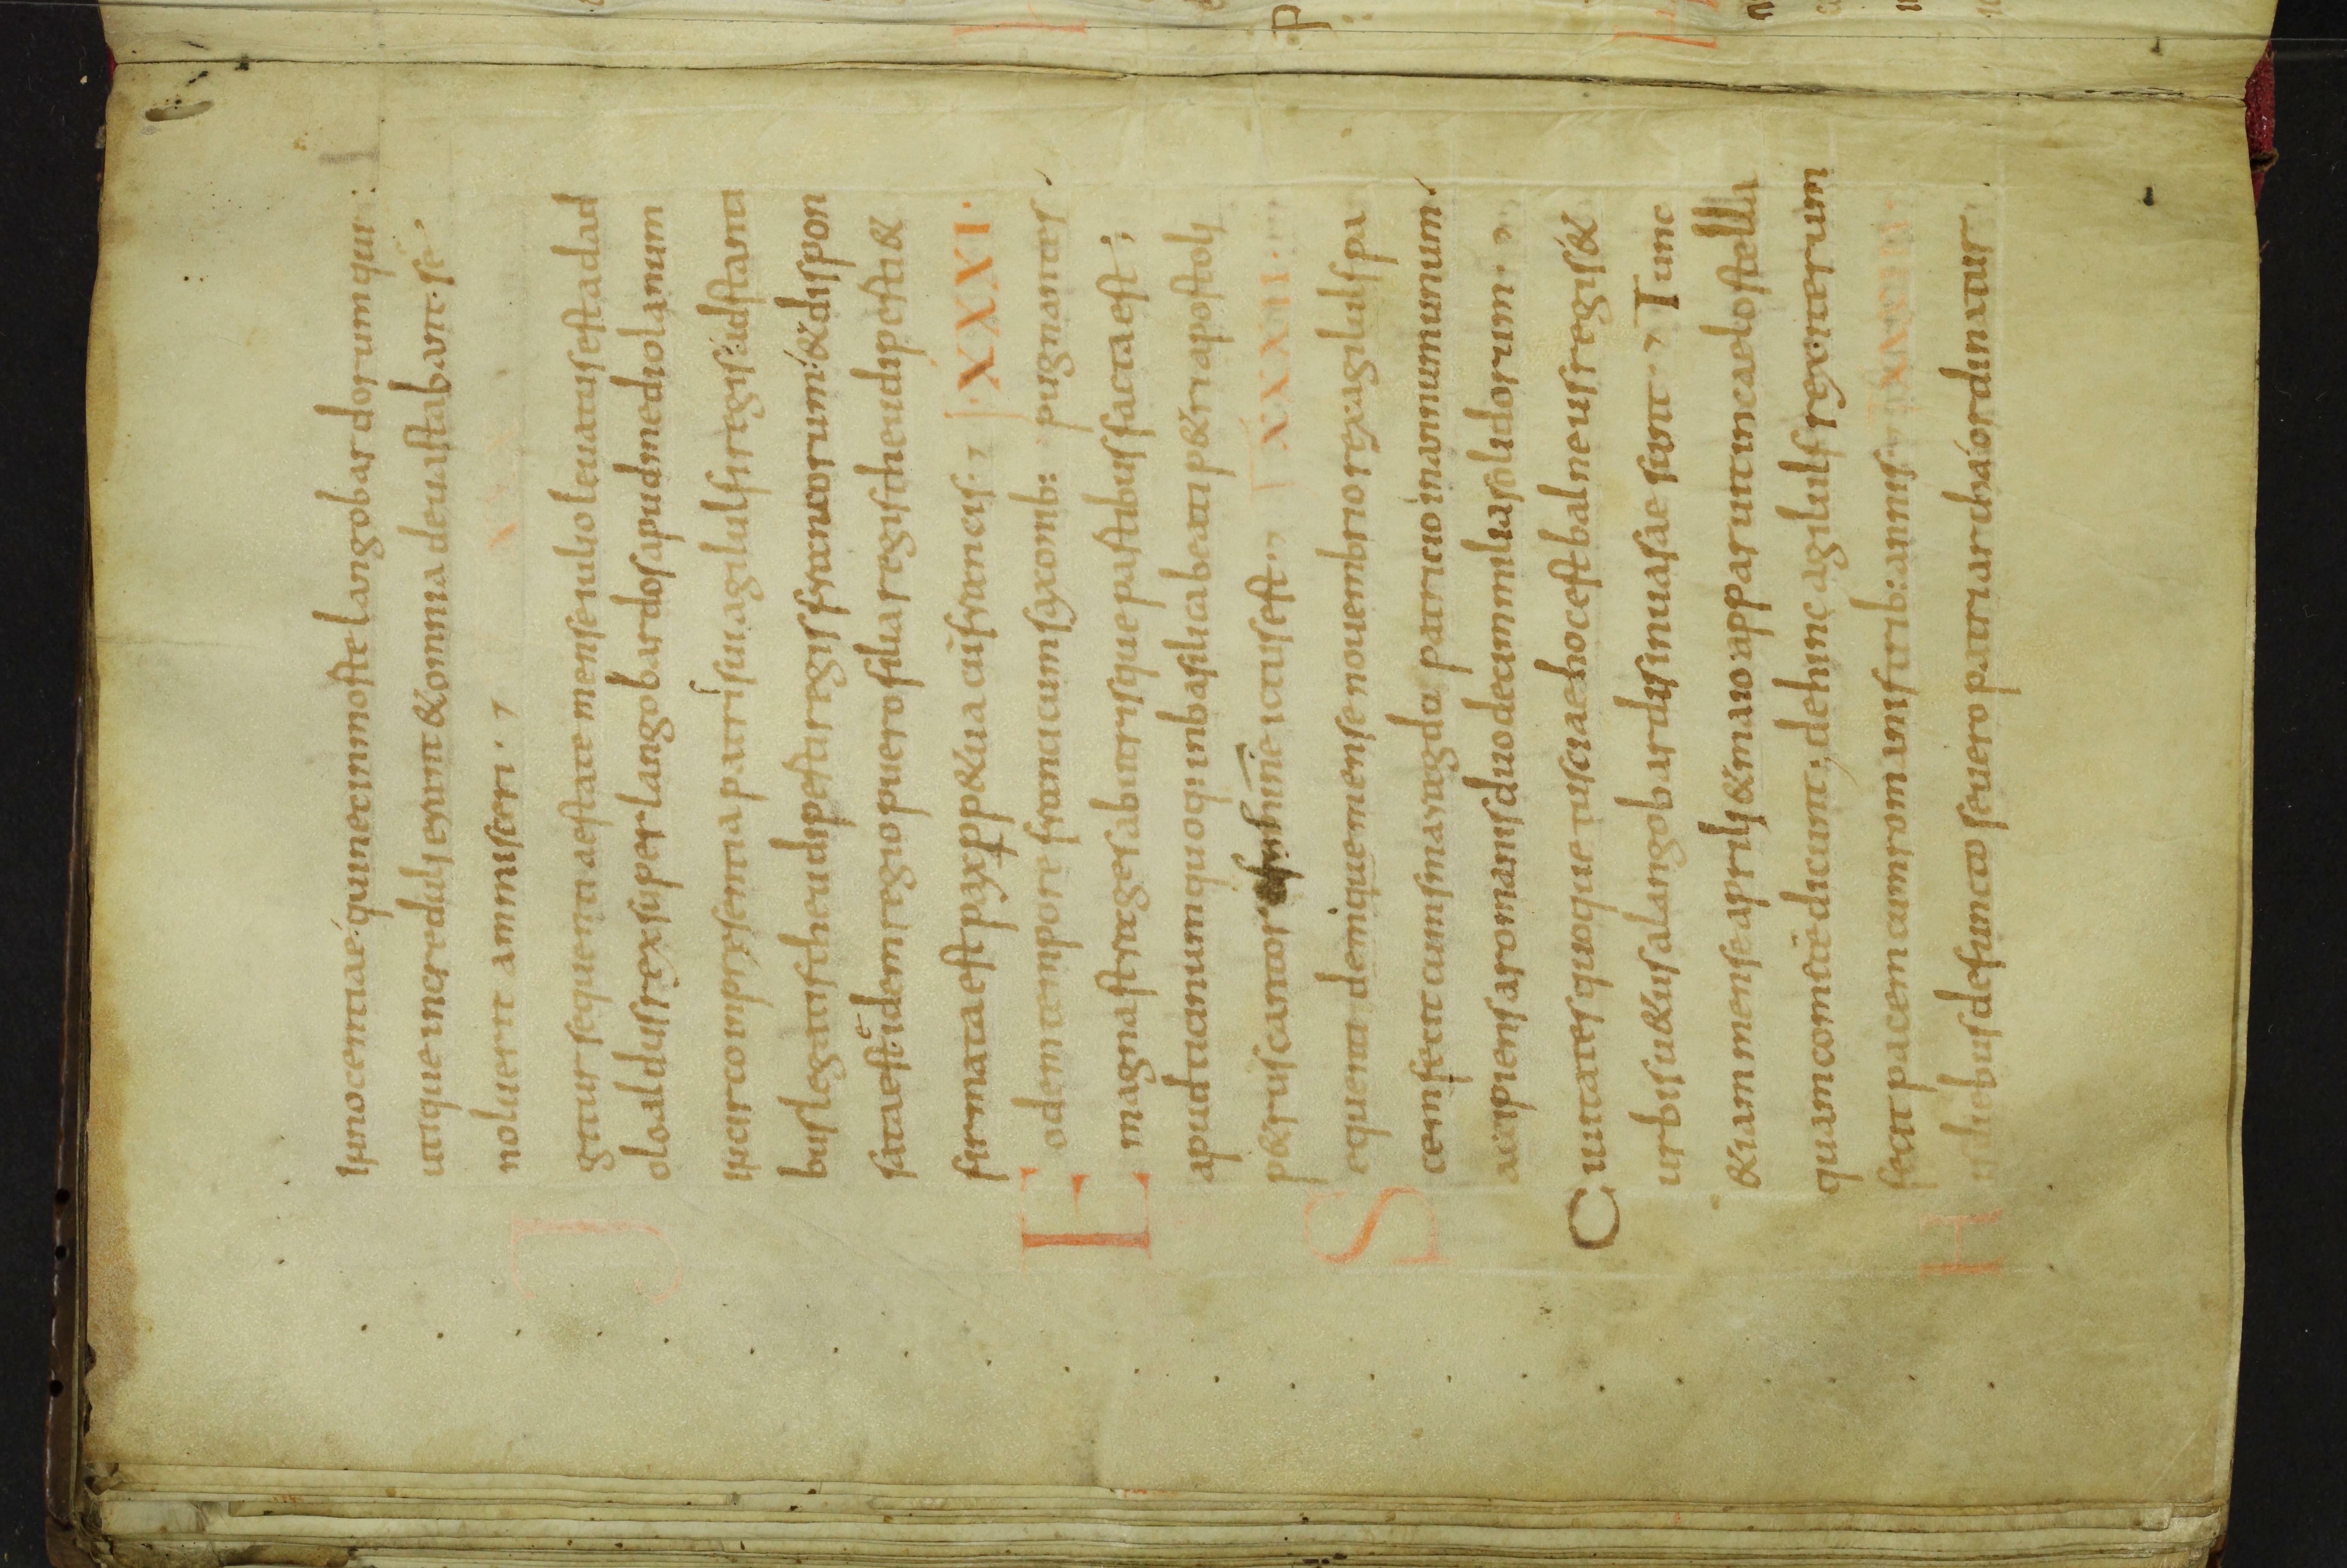 innocentiae· qui nec in nostę langobardorum qui·
utique increduli erant & omnia deuastabant· se
noluerit ammisceri·,
XXX
Igitur sequenti aestate mense iulio leuatus est adal
oloaldus rex super langobardos apud mediolanum
in circo in presentia patris sui agilulfi regis· adstanti
bus legatis theudiperti regis francorum· & dispon
sata est· idem regio puero filia regis theudiperti &
firmata est pax pp&ua cū francis·, XXXI·
Eodem tempore franci cum saxonb: pugnantes
magna strages ab utrisque partibus facta est;
apud ticinum quoq: in basilica beati p&ri apostoli
p&rus cantor fulmine ictus est·, XXXII·
Sequenti denique mense nouembrio rex agilulf pa
cem fecit cum smaragdo patricio in annum unum
accipiens a romanis duodecim milia solidorum·,
Ciuitates quoque tusciae hoc est balneus regis &
urbs u&us a langobardis inuasae sunt·, Tunc
&iam mense aprili & maio apparuit in caelo stella
quam com&ē dicunt; dehinc agilulf rex iterum
fecit pacem cum romanis trib: annis·
His diebus defuncto seuero patriarcha ordinatur